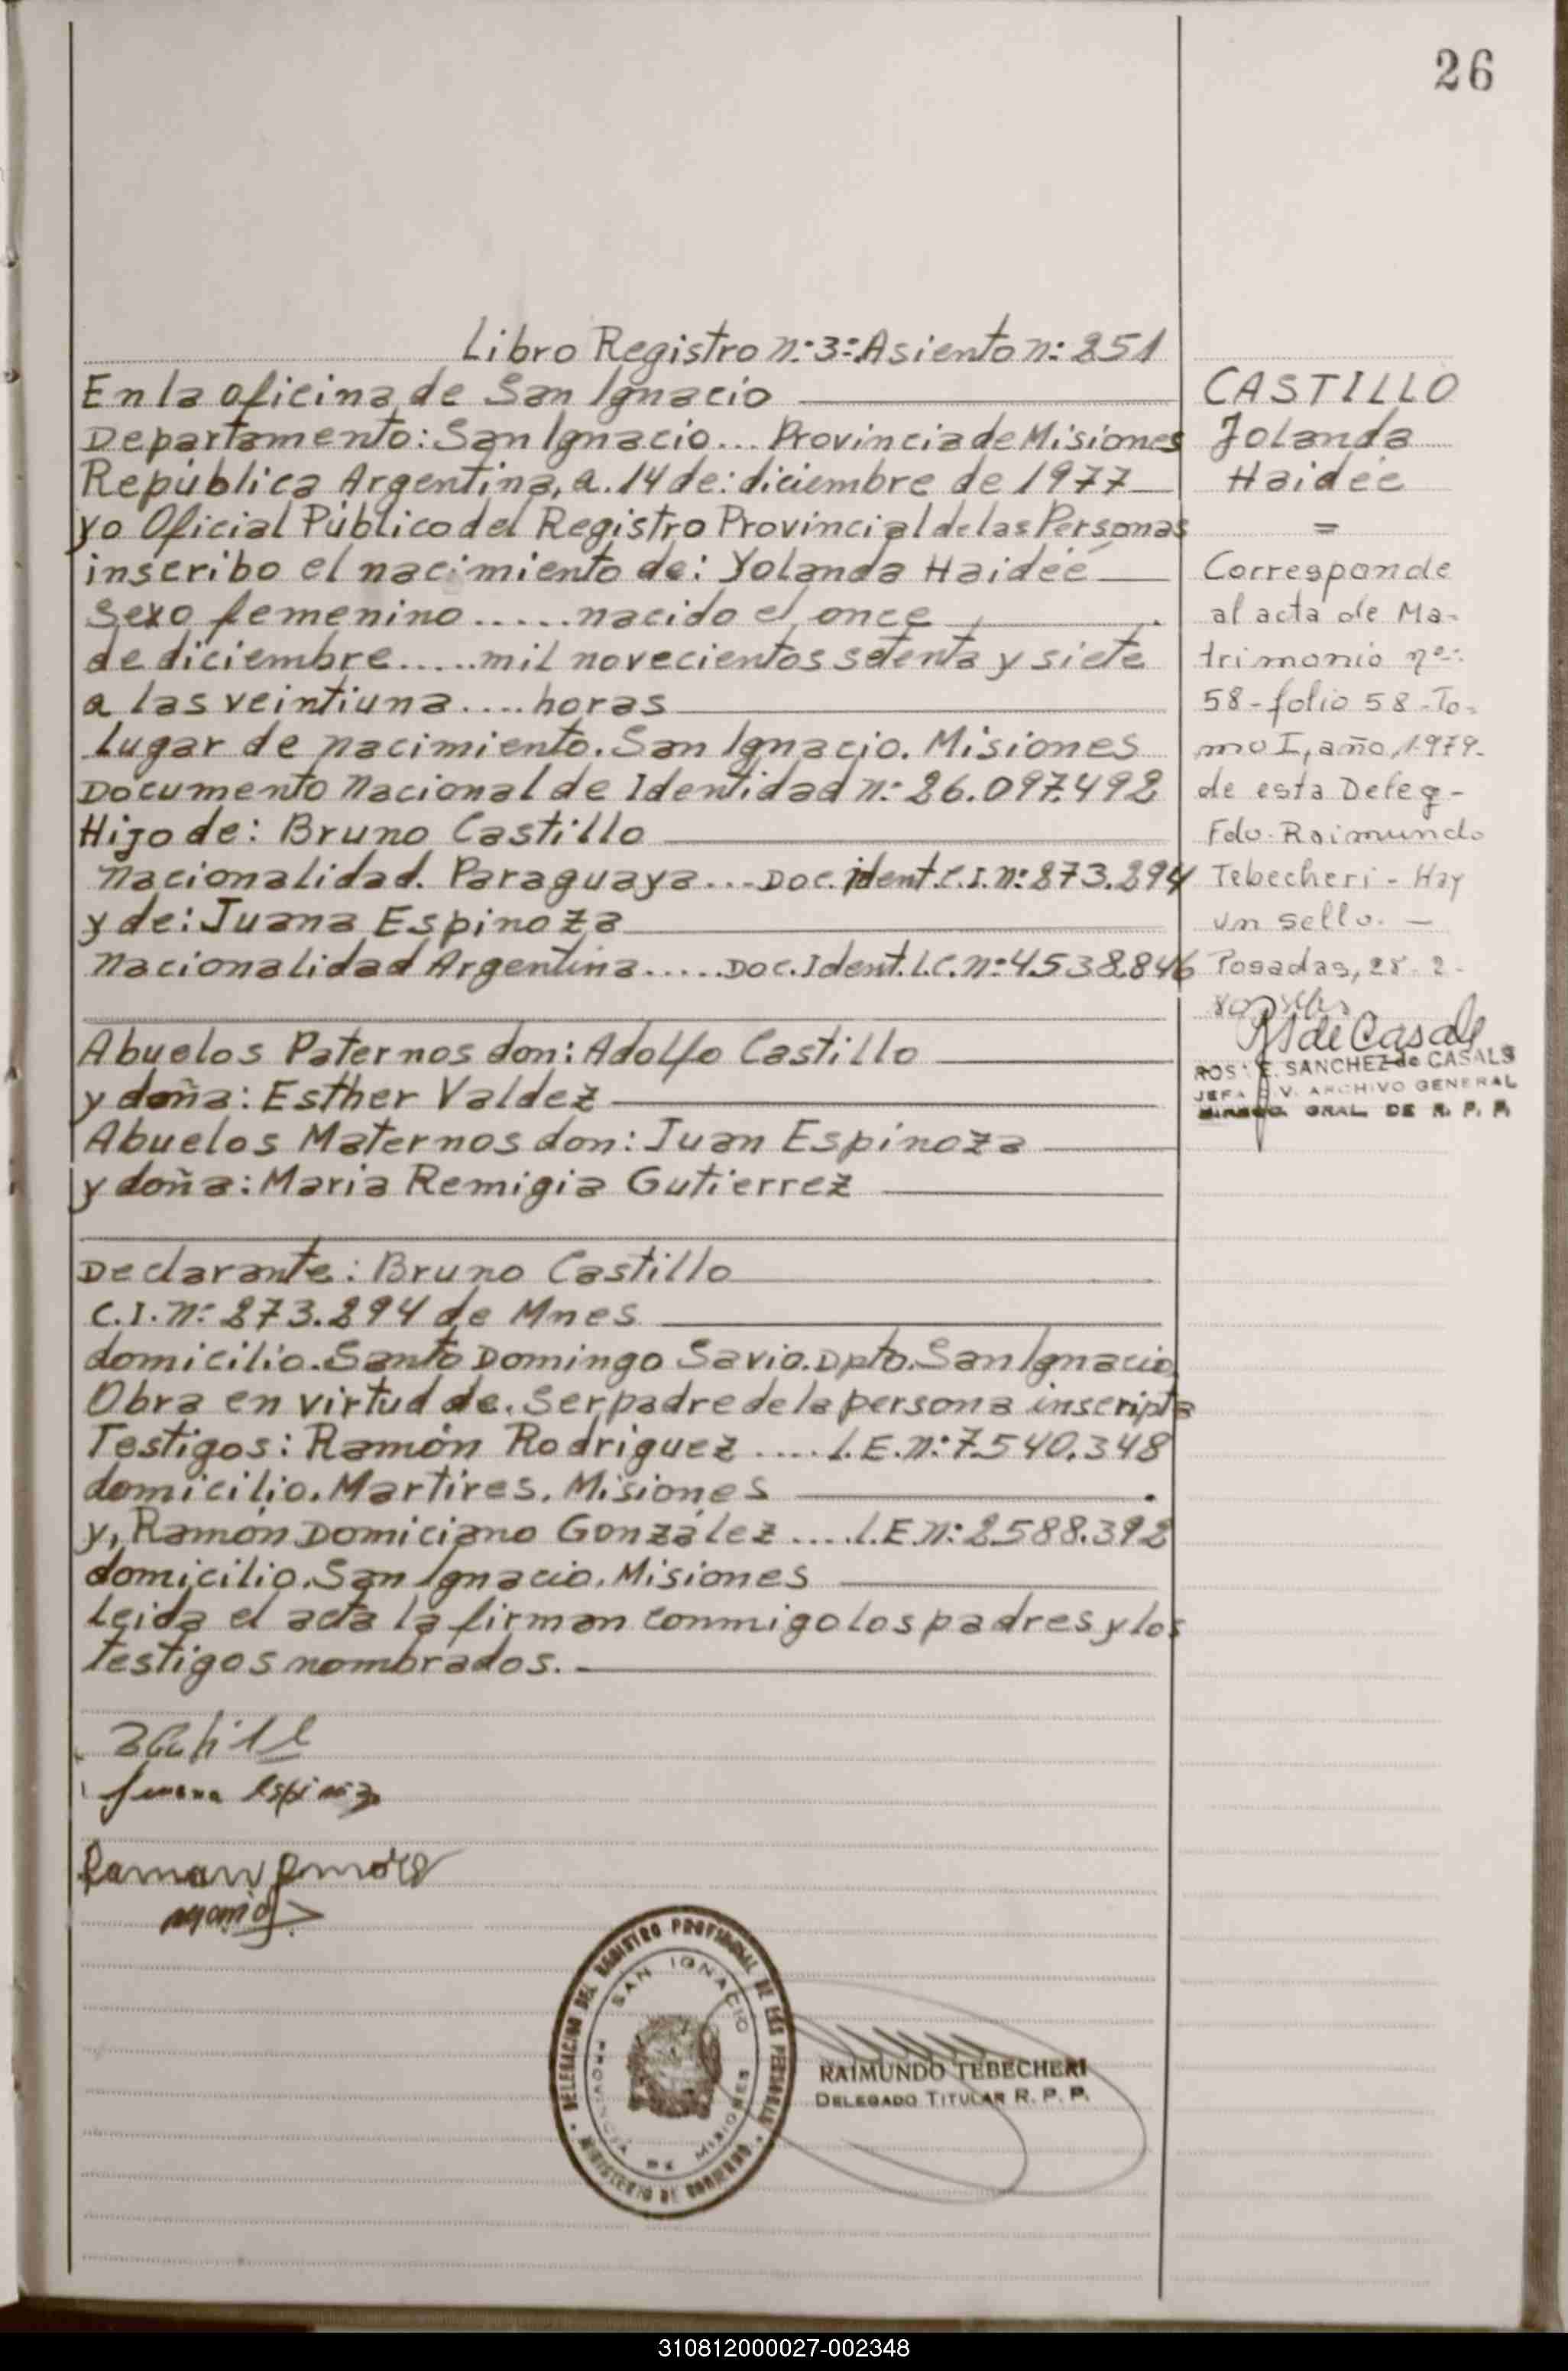 26
Libro Registro n:3:Asiento n: 251
En la oficina de San Ignacio
Departamento: San Ignacio... Provincia de Misiones
República Argentina, a. 14 de: diciembre de 1977
yo Oficial Público del Registro Provincial de las Personas
inscribo el nacimiento de: Yolanda Haideé
Sexo femenino.....nacido el once
de diciembre.....mil novecientos setenta y siete
a las veintiuna....horas
Lugar de nacimiento. San Ignacio. Misiones
Documento Nacional de Identidad n: 26.097.492
Hijo de: Bruno Castillo
Nacionalidad. Paraguaya...Doc. ident. C.I. n: 273.294
y de: Juana Espinoza
Nacionalidad Argentina.....Doc. Ident. L.C. n: 4.538.846
Abuelos Paternos don: Adolfo Castillo
y doña: Esther Valdez
Abuelos Maternos don: Juan Espinoza
y doña: Maria Remigia Gutierrez
Declarante: Bruno Castillo
C.I. n: 273.294 de Mnes
domicilio. Santo Domingo Savio. Dpto. San Ignacio
Obra en virtud de. Ser padre de la persona inscripta
Testigos: Ramón Rodriguez ....L.E. n: 7.540.348
domicilio. Martires. Misiones
y, Ramón Domiciano González ....L.E. n: 2.588.392
domicilio. San Ignacio. Misiones
Leida el acta la firman conmigo los padres y los
testigos nombrados.
Juana Espinoza
Ramon
DELEGACION DEL REGISTRO PROVINCIAL DE LAS PERSONAS
SAN IGNACIO
PROVINCIA DE MISIONES
MINISTERIO DE GOBIERNO
RAIMUNDO TEBECHERI
DELEGADO TITULAR R. P. P.
CASTILLO
Jolanda
Haideé
=
Corresponde
al acta de Ma-
trimonio nº:
58-folio 58-To-
mo I, año, 1979-
de esta Deleg-
Fdo. Raimundo
Tebecheri - Hay
un sello. -
Posadas, 28-2-
80
de Casals
ROSA E. SANCHEZ de CASALS
JEFA DIV. ARCHIVO GENERAL
DIRECC. GRAL DE R. P. P.
310812000027-002348